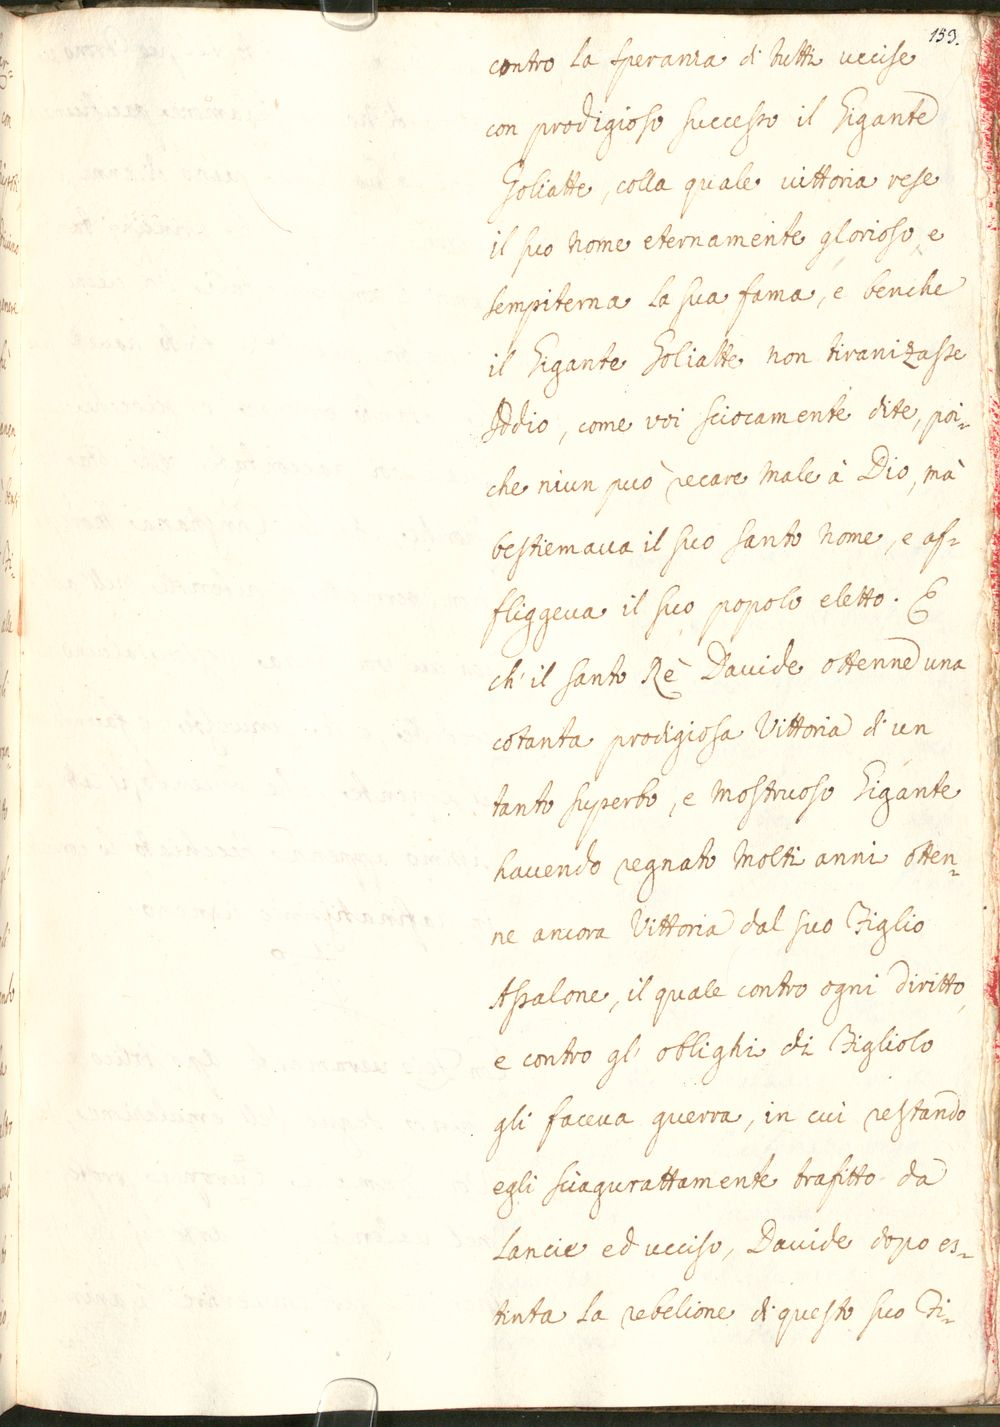 153.
contro la speranza di tutti uccise
con prodigioso successo il Gigante
Goliatte, colla quale vittoria rese
il suo Nome eternamente glorioso, e
sempiterna la sua fama, e benche
il Gigante Goliatte non tiranizasse
Iddio, come voi sciocamente dite, poi-
che niun può recare male à Dio, mà
bestiemaua il suo santo Nome, e af-
fliggeua il suo popolo eletto. E
ch' il santo Rè Dauide ottenne una
cotanta prodigiosa Vittoria di un
tanto superbo, e Mostruoso Gigante
hauendo regnato Molti anni otten-
ne ancora Vittoria dal suo Figlio
Assalone, il quale contro ogni diritto,
e contro gl' obblighi di Figliolo
gli faceua guerra, in cui restando
egli sciagurattamente trafitto da
Lancie ed ucciso, Dauide dopo es-
tinta la rebelione di questo suo Fi-